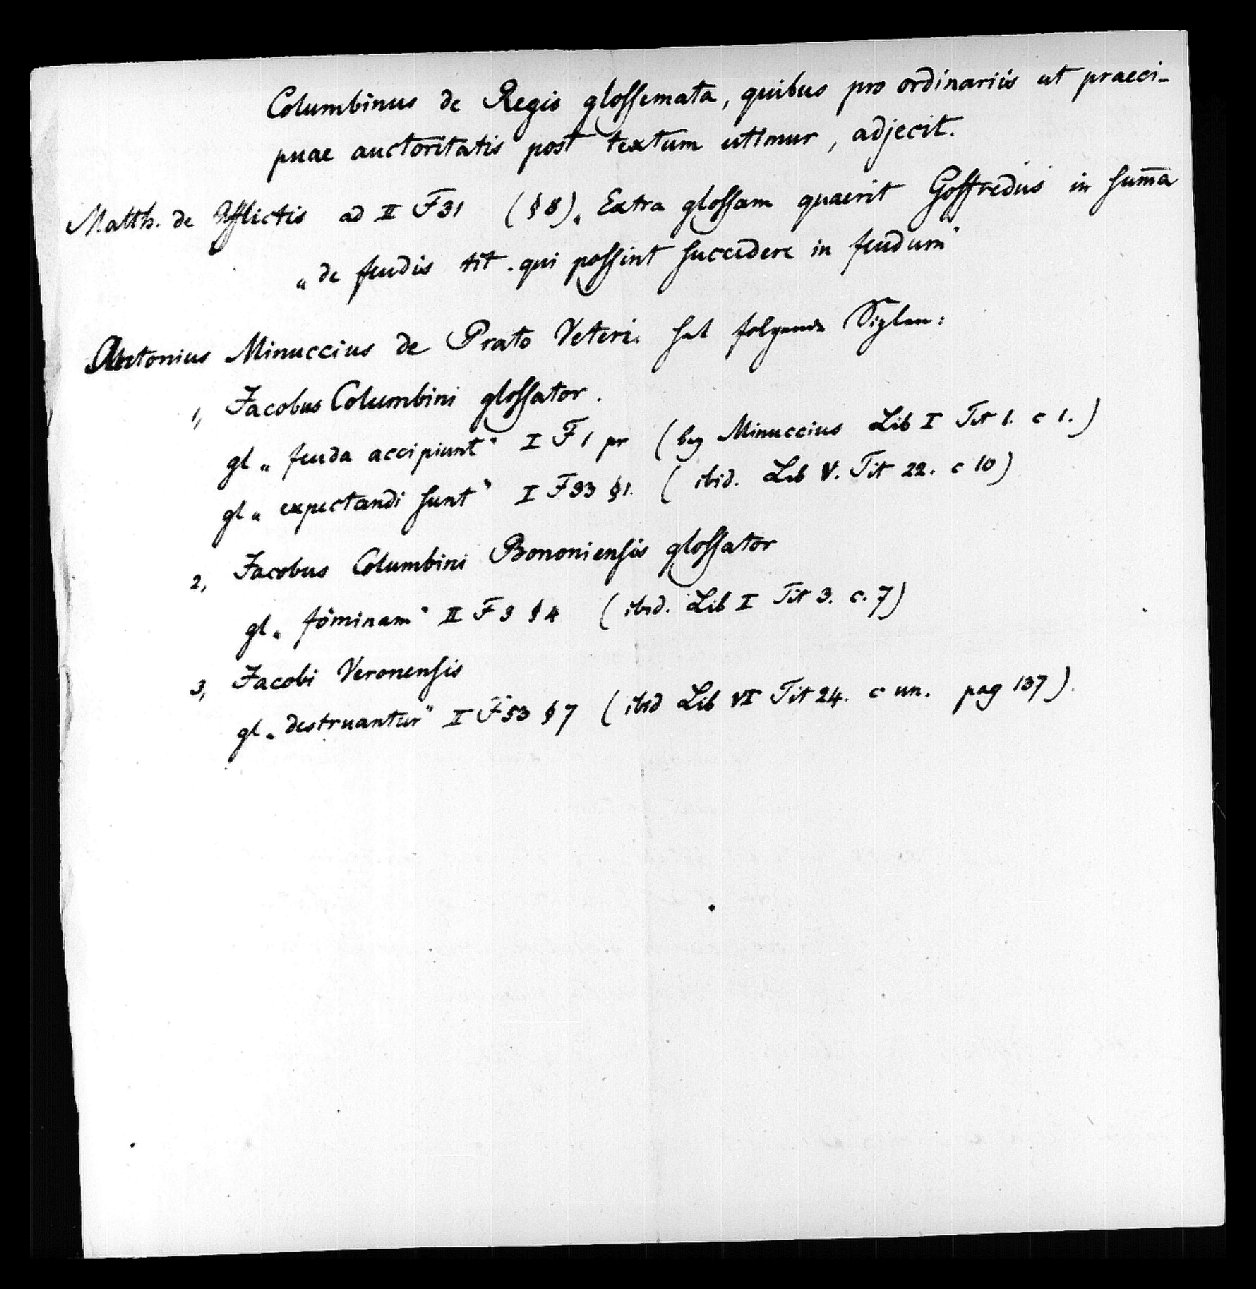 Columbinus de Regio glossemata, quibus pro ordinariis ut praeci-
puae auctoritatis post textum utimur, adjecit.
Matth. de Afflictis ad II F 31 (§ 8) „Extra glossam quaerit Goffredus in suma
„de feudis tit. qui possint succedere in feudum“
Antonius Minuccius de Prato Veteri hat folgende Siglen:
1, Jacobus Columbini glossator.
gl „feuda accipiunt“ I F 1 pr (bey Minuccius Lib I Tit 1. c 1.)
gl „expectandi sunt“ I F 33 § 1. (ibid. Lib V. Tit 22. c 10)
2, Jacobus Columbini Bononiensis glossator
gl „föminam“ II F 3 § 4 (ibid. Lib I Tit 3. c. 7)
3, Jacobi Veronensis
gl „destruantur“ I F 53 § 7 (ibid Lib VI Tit 24. c un. pag 137).